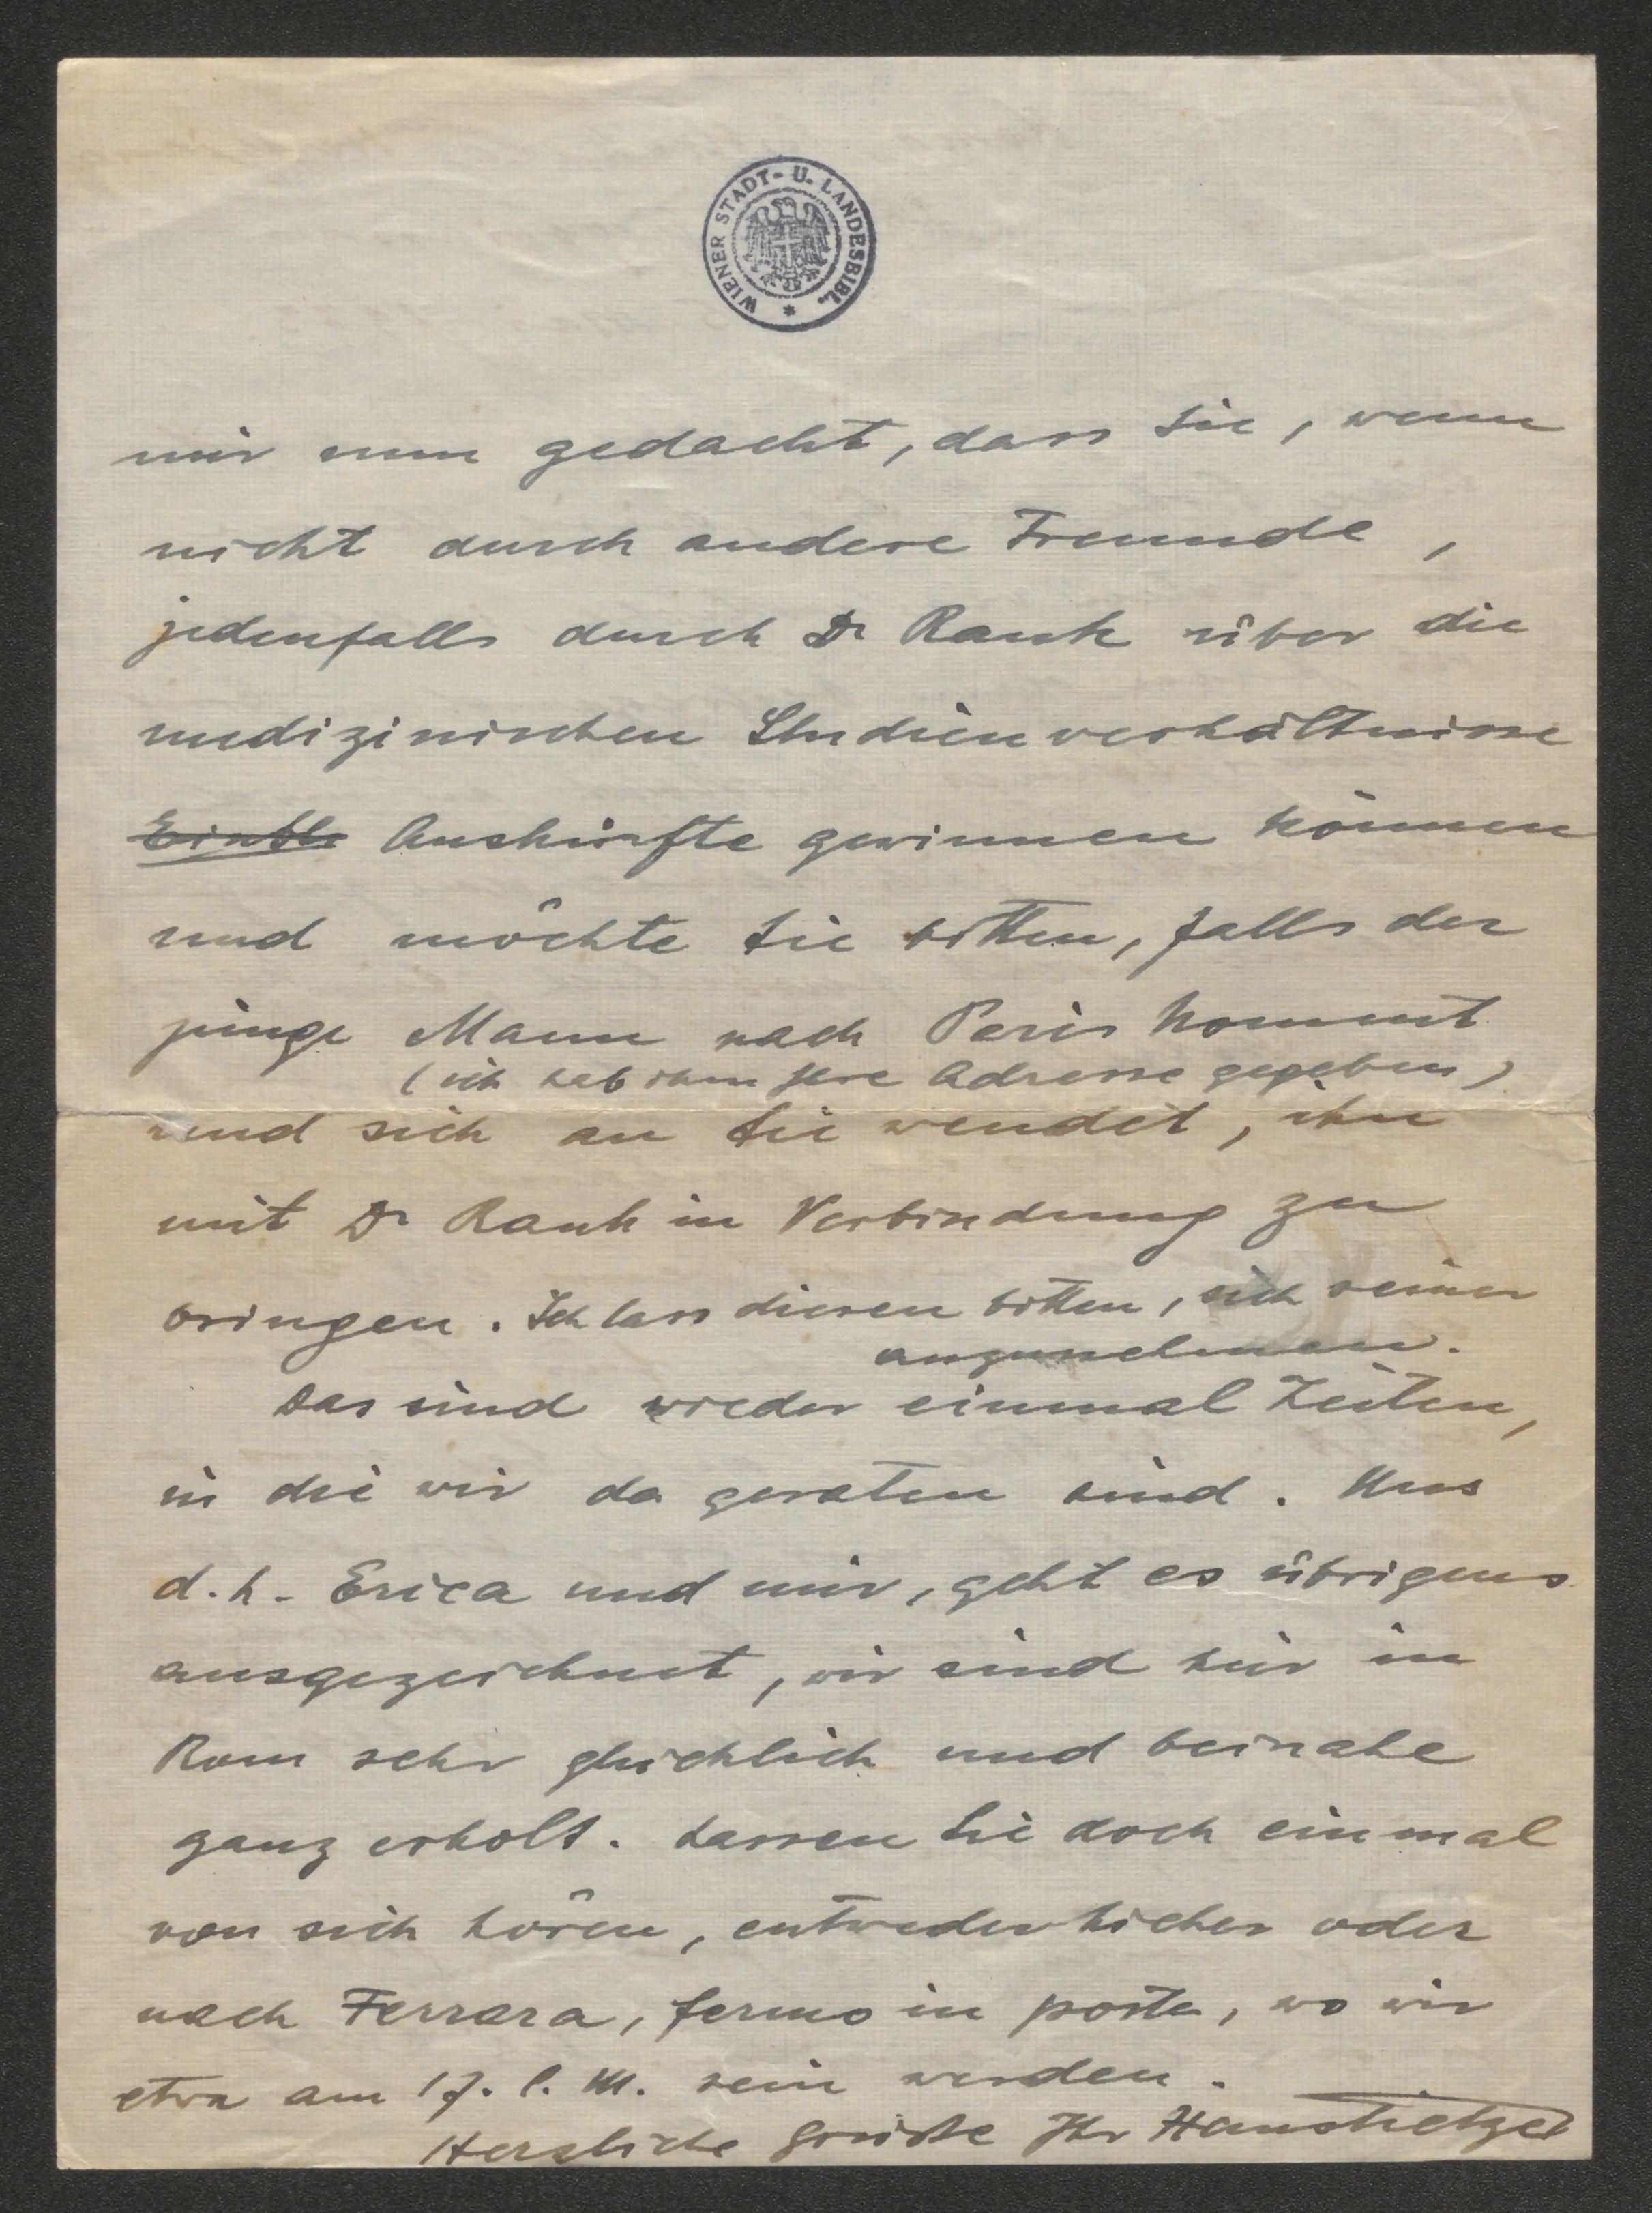 WIENER STADT- U. LANDESBIBL. *
mir nun gedacht, dass Sie, wenn
nicht durch andere Freunde,
jedenfalls durch Dr Rank über die
medizinischen Studienverhältnisse
Auskünfte gewinnen können
und möchte Sie bitten, falls der
junge Mann nach Paris kommt
(ich hab ihm Ihre Adresse gegeben)
und sich an Sie wendet, ihn
mit Dr Rank in Verbindung zu
bringen. Ich lass diesen bitten, sich seiner
anzunehmen.
Das sind wieder einmal Zeiten,
in die wir da geraten sind. Uns
d. h. Erica und mir, geht es übrigens
ausgezeichnet, wir sind hier in
Rom sehr glücklich und beinahe
ganz erholt. Lassen Sie doch einmal
von sich hören, entweder hieher oder
nach Ferrara, fermo in posta, wo wir
etwa am 17. l. M. sein werden.
Herzliche Grüße Ihr Hans Tietze